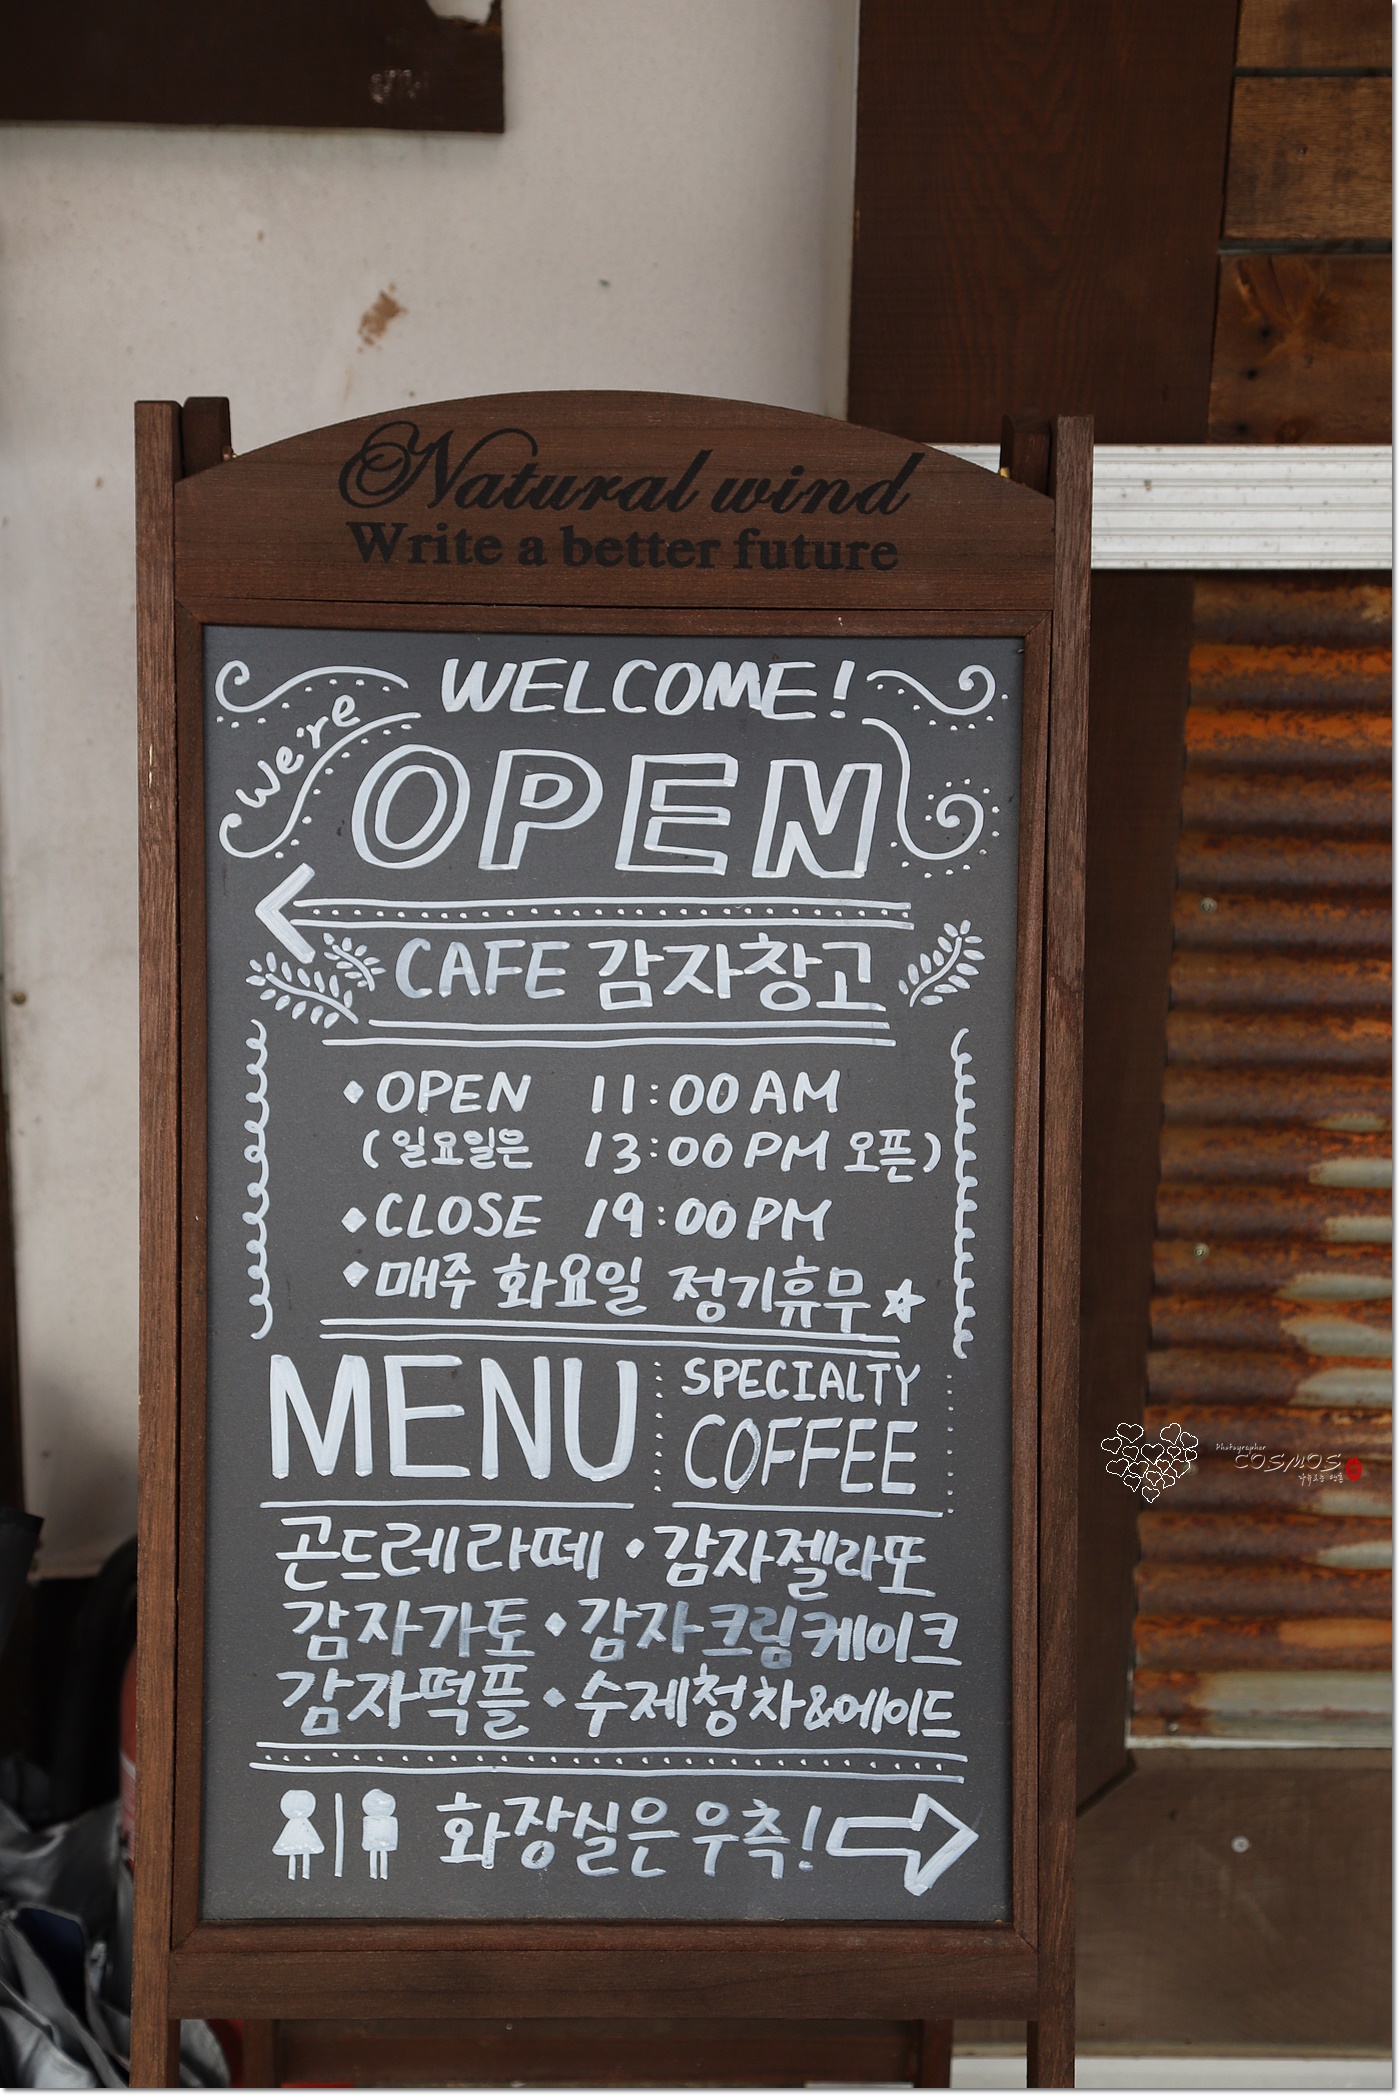 Natural wind
Write a better future
WELCOME!
We're
OPEN
CAFE 감자창고
OPEN 11:00 AM
(일요일은 13:00 PM 오픈)
CLOSE 19:00 PM
매주 화요일 정기휴무
MENU
SPECIALTY
COFFEE
곤드레라떼 · 감자젤라또
감자가도 · 감자크림케이크
감자떡플 · 수제청차&에이드
화장실은 우측!
Photographer
COSMOS